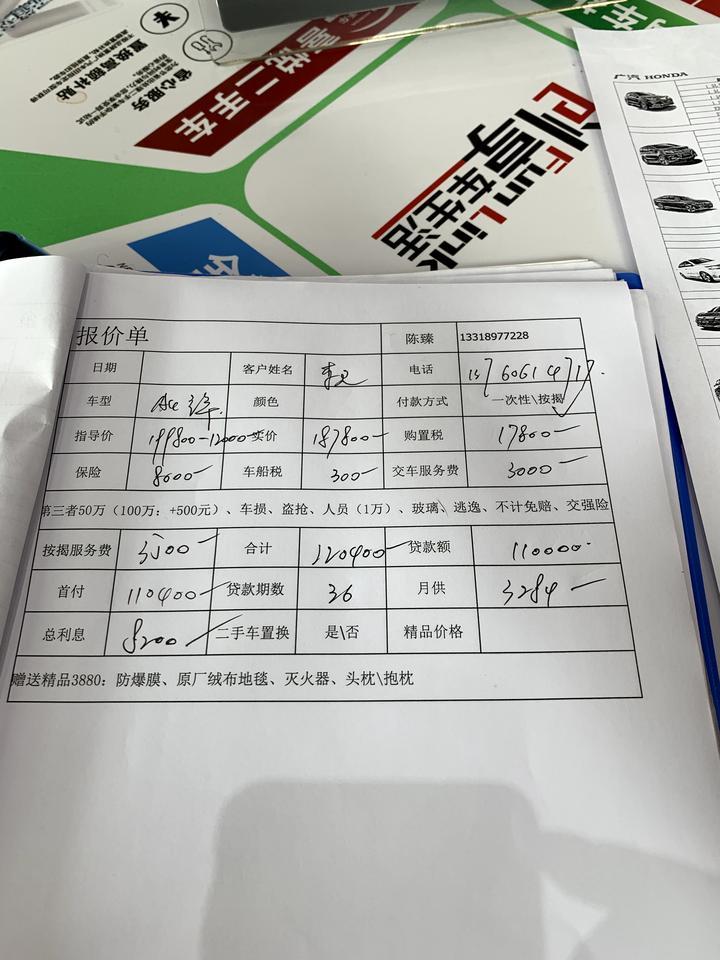 置换高额补贴
省心服务
二手车
创享车生活
Fun Link
广汽 HONDA
报价单 陈臻 13318977228
日期 客户姓名 电话
车型 颜色 付款方式 一次性\按揭
指导价 199800-12000 卖价 187800 购置税 17800
保险 8000 车船税 300 交车服务费 3000
第三者50万（100万：+500元）、车损、盗抢、人员（1万）、玻璃、逃逸、不计免赔、交强险
按揭服务费 3500 合计 220400 贷款额 110000
首付 110400 贷款期数 36 月供 3284
总利息 8200 二手车置换 是\否 精品价格
赠送精品3880：防爆膜、原厂绒布地毯、灭火器、头枕\抱枕